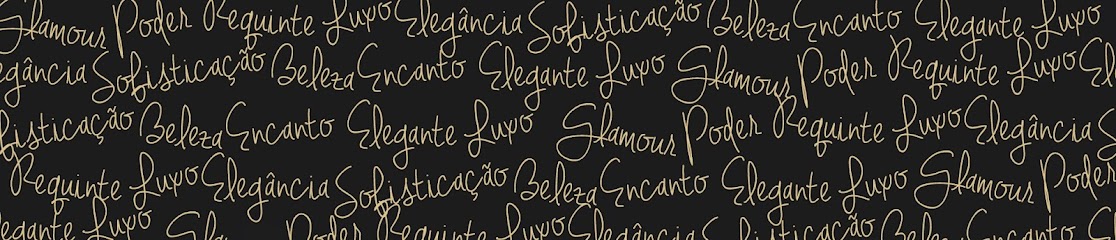 Glamour Poder Requinte Luxo Elegância Sofisticação Beleza Encanto Elegante Luxo
egância Sofisticação Beleza Encanto Elegante Luxo Glamour Poder Requinte Luxo El
fisticação Beleza Encanto Elegante Luxo Glamour Poder Requinte Luxo Elegância S
Requinte Luxo Elegância Sofisticação Beleza Encanto Elegante Luxo Glamour Poder
egante Luxo Glamour Poder Requinte Luxo Elegância Sofisticação Beleza Encanto